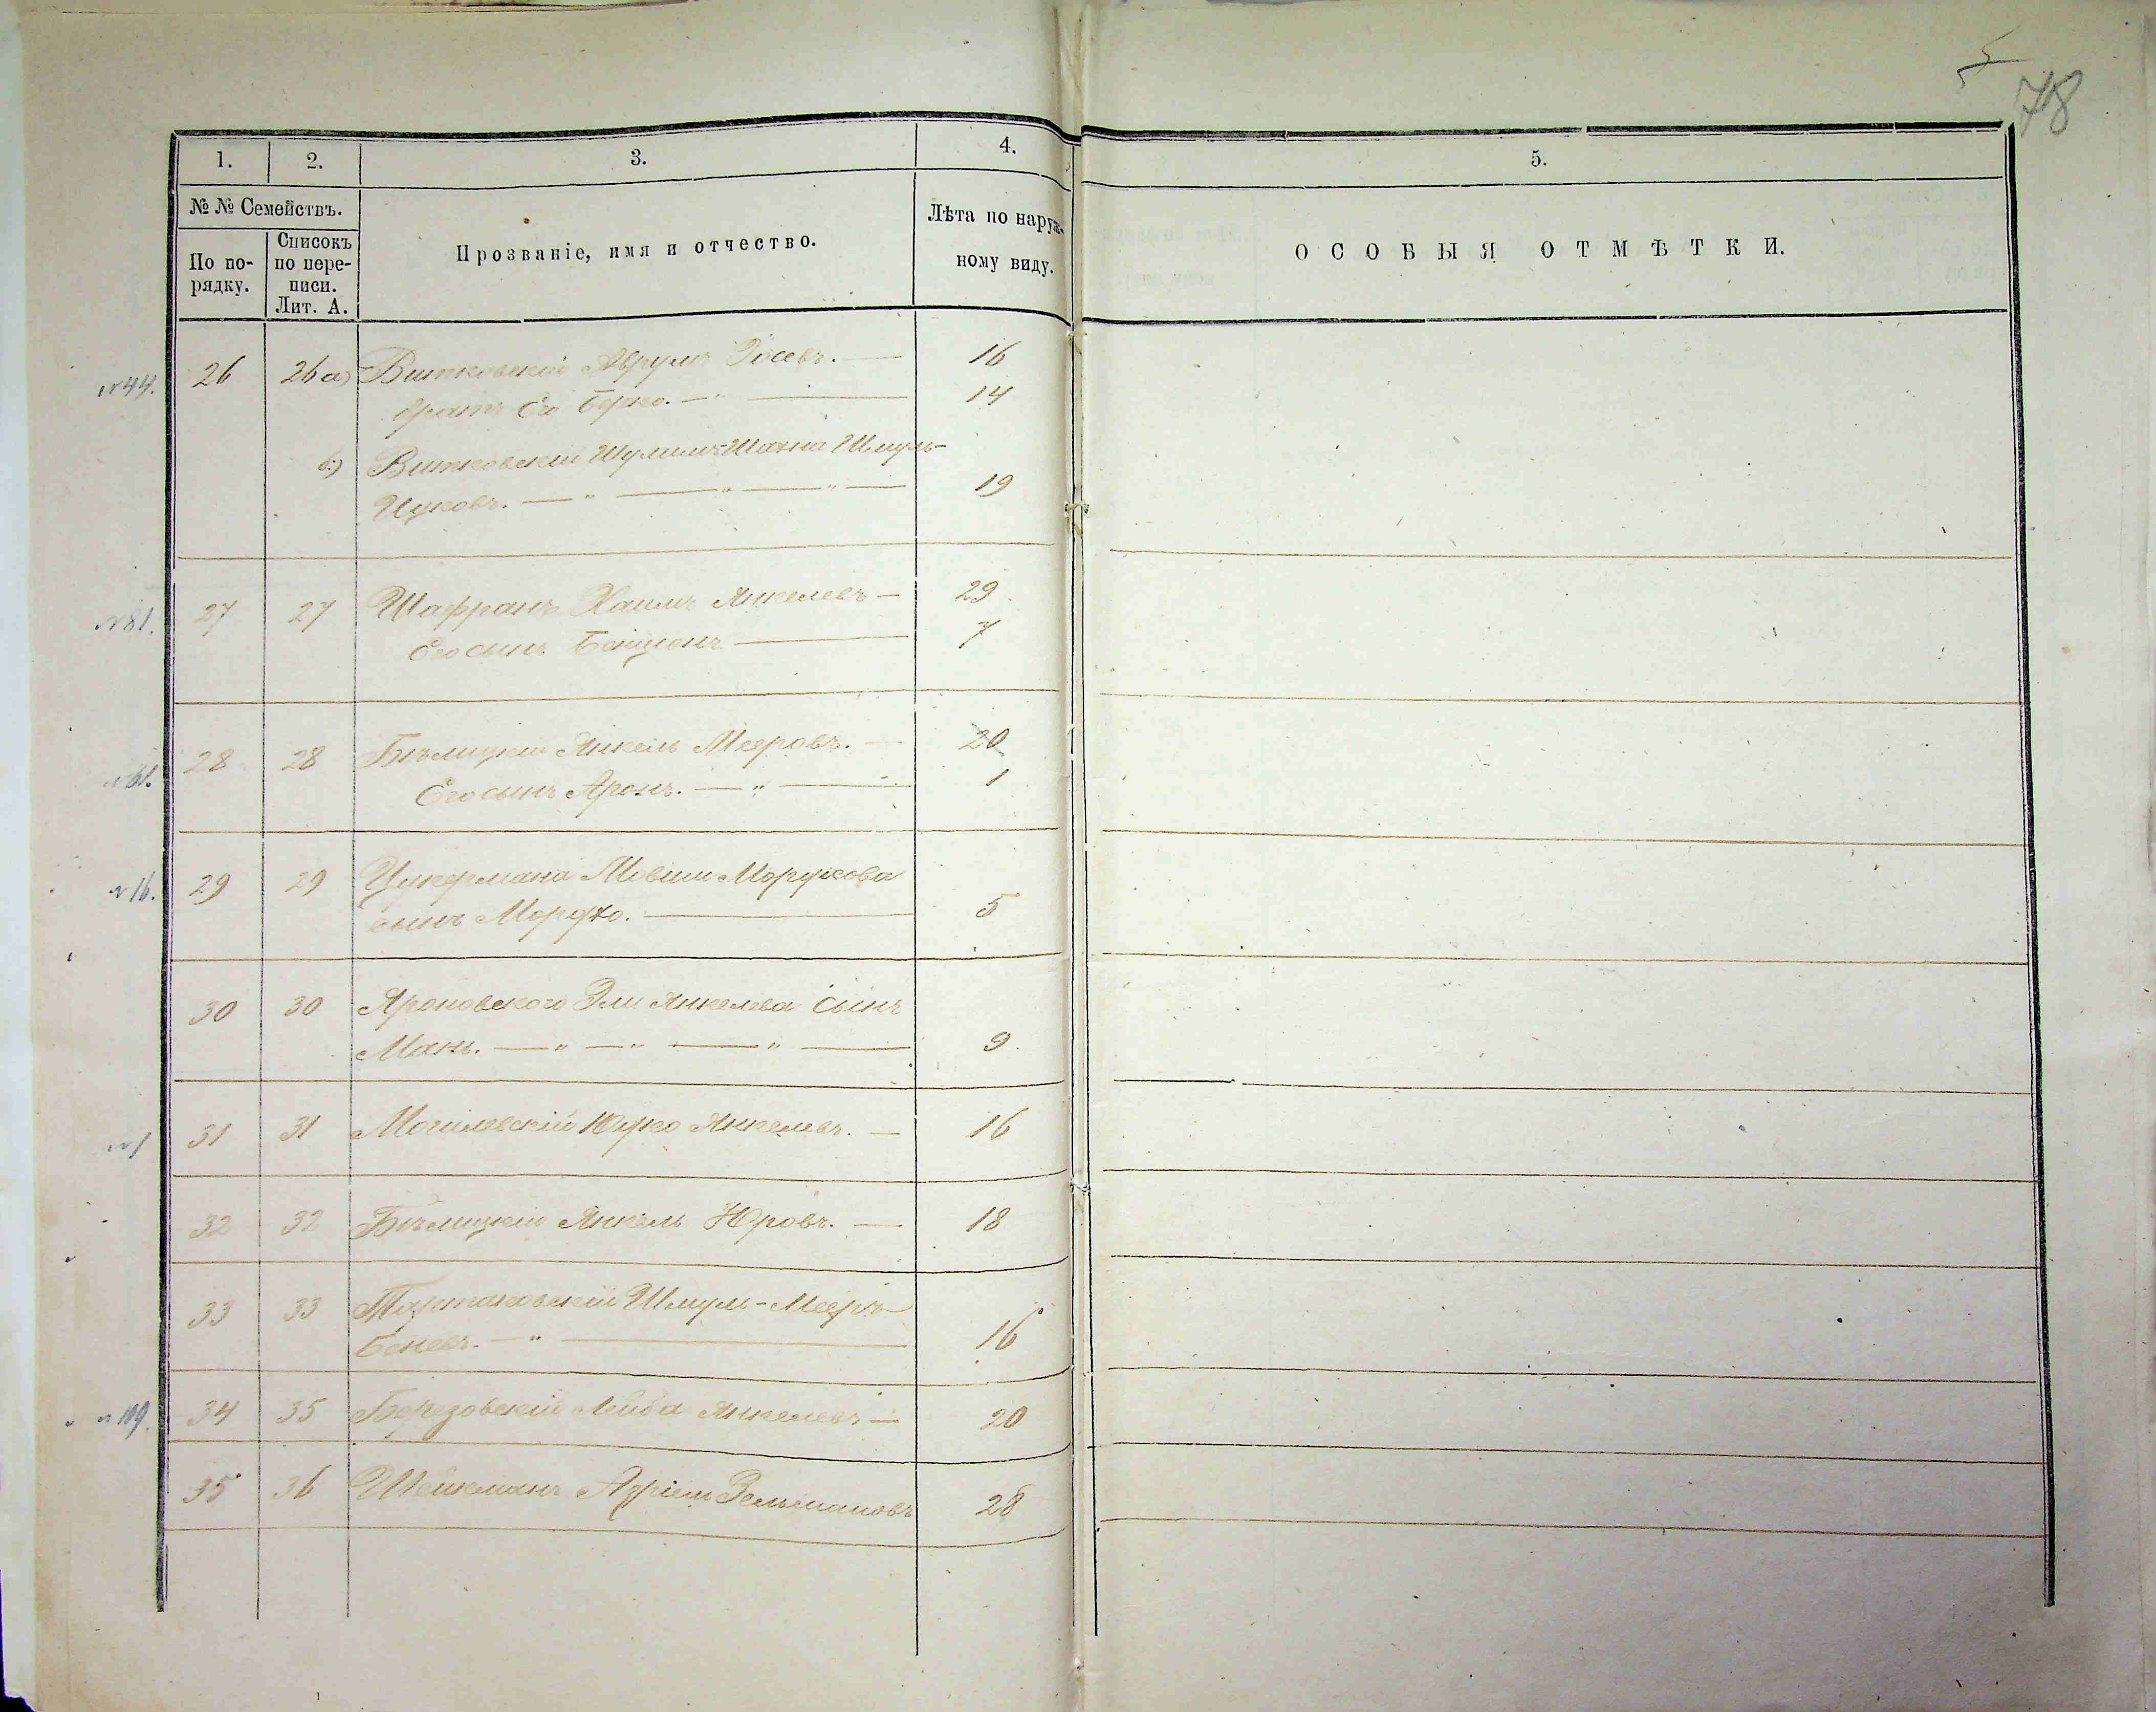 5
78
1. 2. 3. 4. 5.
№ № Семействъ.
По по-
рядку.
Списокъ
по пере-
писи.
Лит. А.
Прозваніе, имя и отчество.
Лѣта по наруж-
ному виду.
ОСОБЫЯ ОТМѢТКИ.
№44. 26 26 а) Витковскій Аврумъ Іосевъ. — 16
братъ Его Берко. — " — 14
б) Витковскій Шулимъ-Шахна Шмуль-
Ицковъ. — " — " — " — 19
№81. 27 27 Шафранъ Хаимъ Янкелевъ — 29
Его сынъ Бенціонъ — 7
№61. 28 28 Бѣлицкій Янкель Мееровъ. — 20
Его сынъ Аронъ. — " — 1
№16. 29 29 Цукермана Мовши Мордкова
сынъ Мордко. — 5
30 30 Ароновского Эли Янкелева сынъ
— " — " — " — 9
№1 31 31 Могилевскій Юдко Янкелевъ. — 16
32 32 Бѣлицкій Янкель Юровъ. — 18
33 33 Тартаковскій Шмуль-Мееръ
Беневъ. — " — 16
№109. 34 35 Березовскій Лейба Янкелевъ — 20
35 36 Шейнманъ Азріель Зельмановъ 28